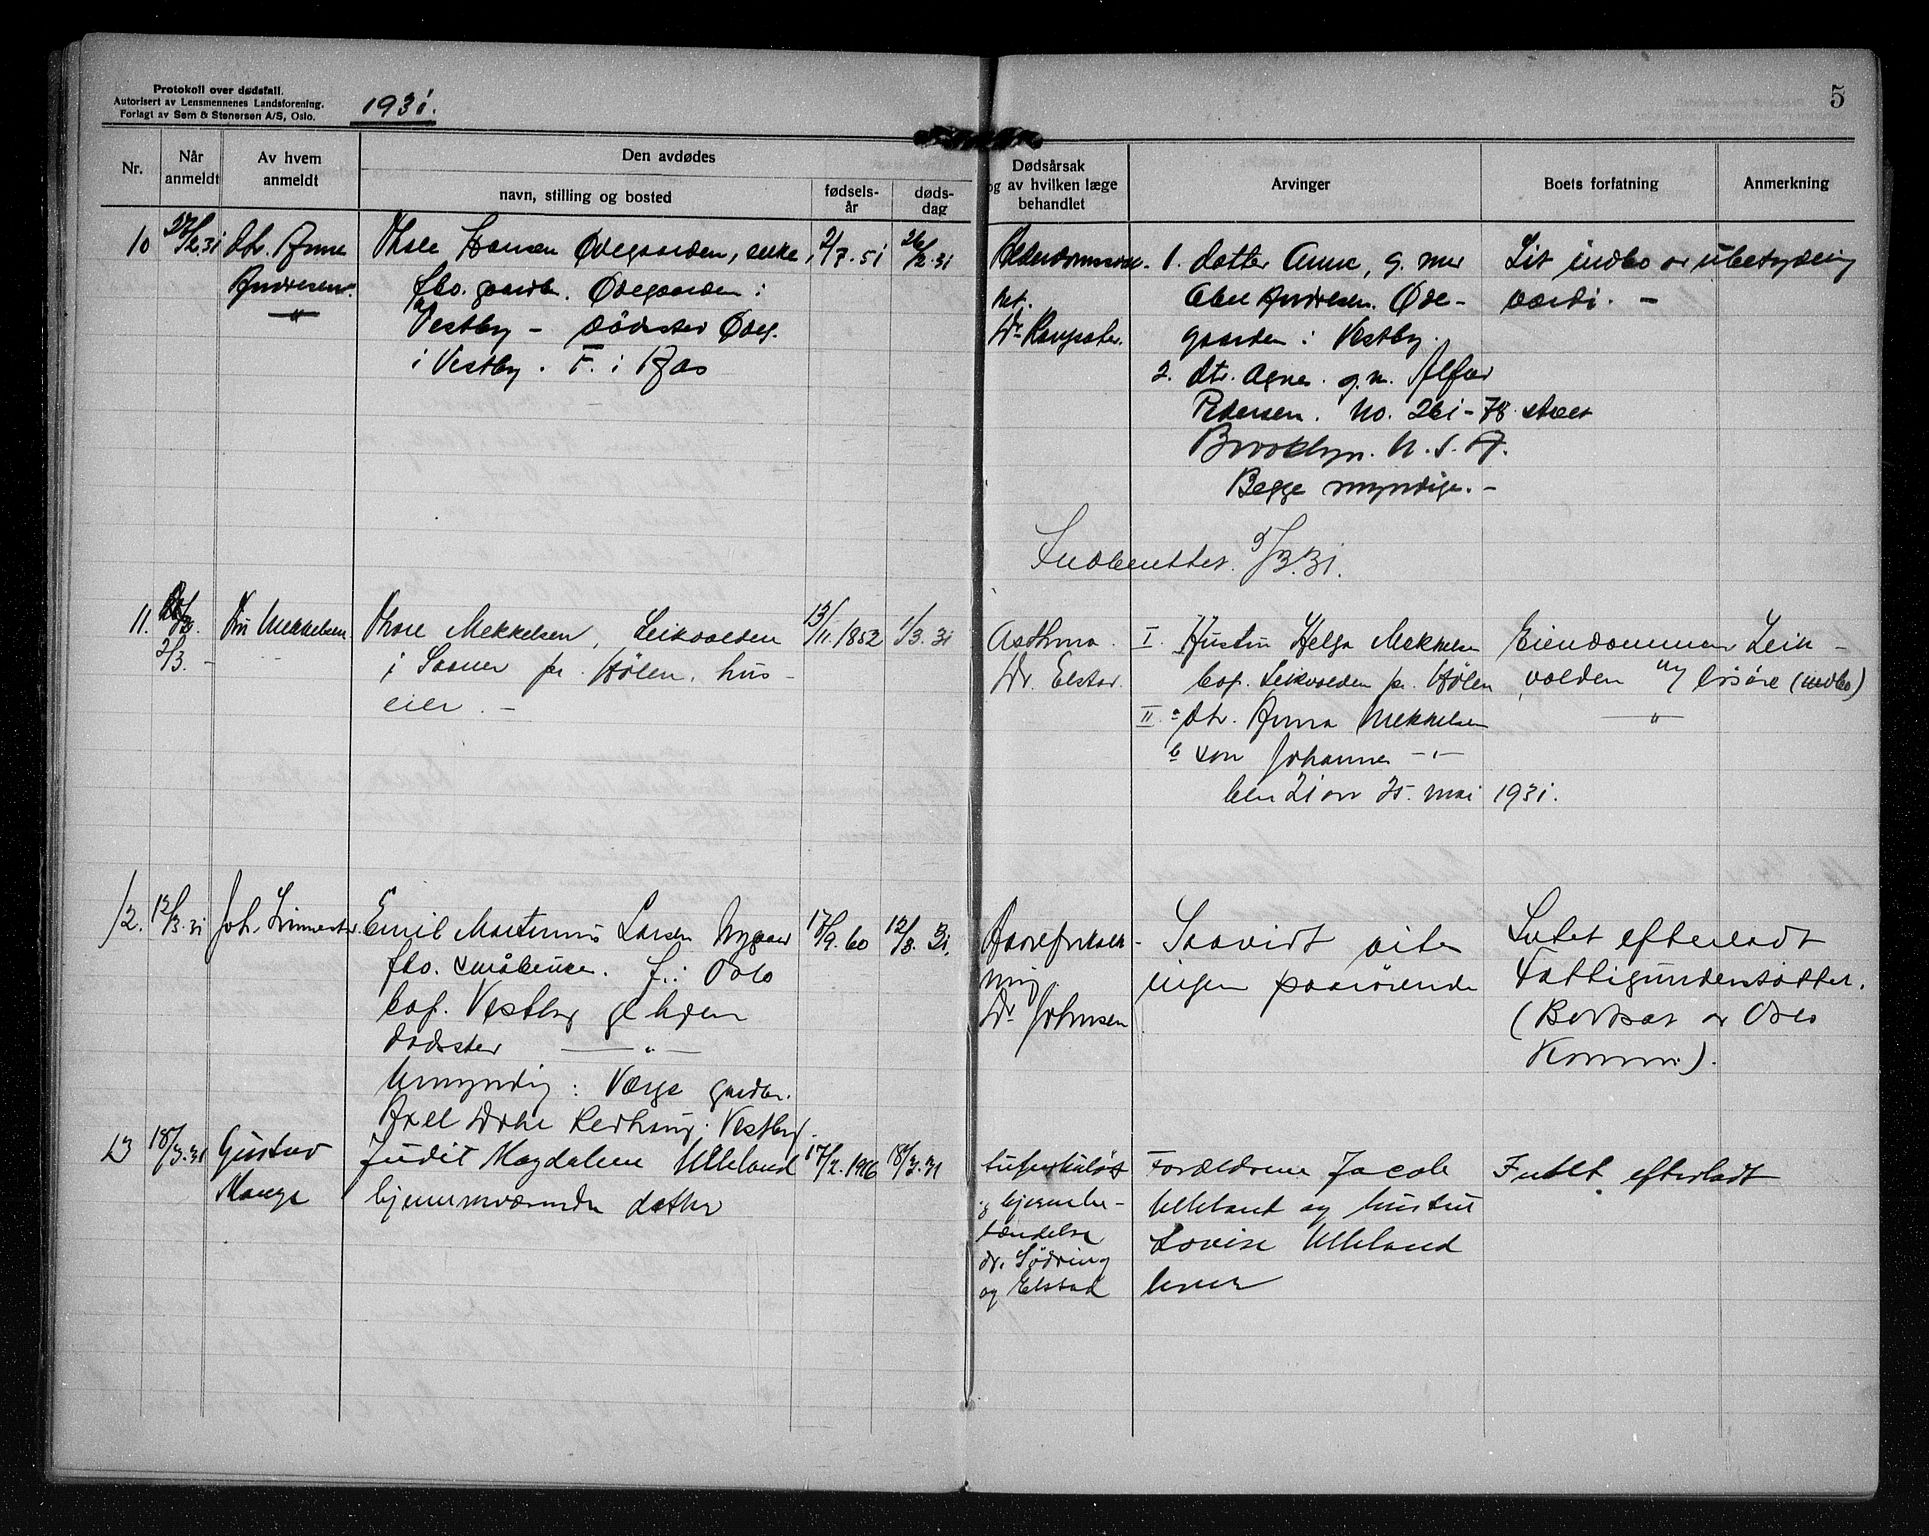 Protokoll over dødsfall.
Autorisert av Lensmennenes Landsforening.
Forlagt av Sem & Stenersen A/S, Oslo.
1931.
5
Nr.
Når anmeldt
Av hvem anmeldt
Den avdødes
navn, stilling og bosted
fødsels-år
døds-dag
Dødsårsak og av hvilken læge behandlet
Arvinger
Boets forfatning
Anmerkning
10
27/2.31
dtr. Anne
Andresen.
Hansen Ødegaarden, enke
fhv. gaardb. Ødegaarden i
Vestby - dødssted Ødeg.
i Vestby. F. i Aas
2/7.51
26/2.31
1. datter Anne, g. med
Andresen. Øde-
gaarden i Vestby.
2. dtr. Agnes. g.m. Alfred
Pedersen. No. 261-78 street
Brooklyn. U.S.A.
Begge myndige. -
Lit indbo av ubetydelig
værdi. -
Indberettet. 9/3.31.
11.
2/3. -
Fru Mekkelsen
Thore Mekkelsen, Leikvolden
i Saaner pr. Hølen, hus-
eier. -
13/11.1852
1/3.31
Asthma.
Dr. Elstad.
I. Hustru Helga Mekkelsen
bof. Leikvolden pr. Hølen
II. a dtr. Anna Mekkelsen
b søn Johannes -"-
25. mai 1931.
Eiendommen Leik-
volden og løsøre (indbo)
12.
12/3.31
Joh.
Emil Martinius Larsen Nygaard
fhv. småbruker. f. i Oslo
bof. Vestby g.hjem
Dødssted -"-
Umyndig: Værge gardbr.
Axel Vestby.
17/9.60
12/3.31.
Dr. Johnsen
Saavidt vites
ingen paarørende
Intet efterladt
Fattigunderstøttet.
(Bortsat av Oslo
Komm.).
13
18/3.31
Gustav
Mange
Judit Magdalene Ulleland
hjemmeværende datter
17/2.1916
18/3.31
tuberkuløs
hjernebe-
tændelse
dr. Sødring
og Elstad
Forældrene Jacob
Ulleland og hustru
Lovise Ulleland
lever
Intet efterladt